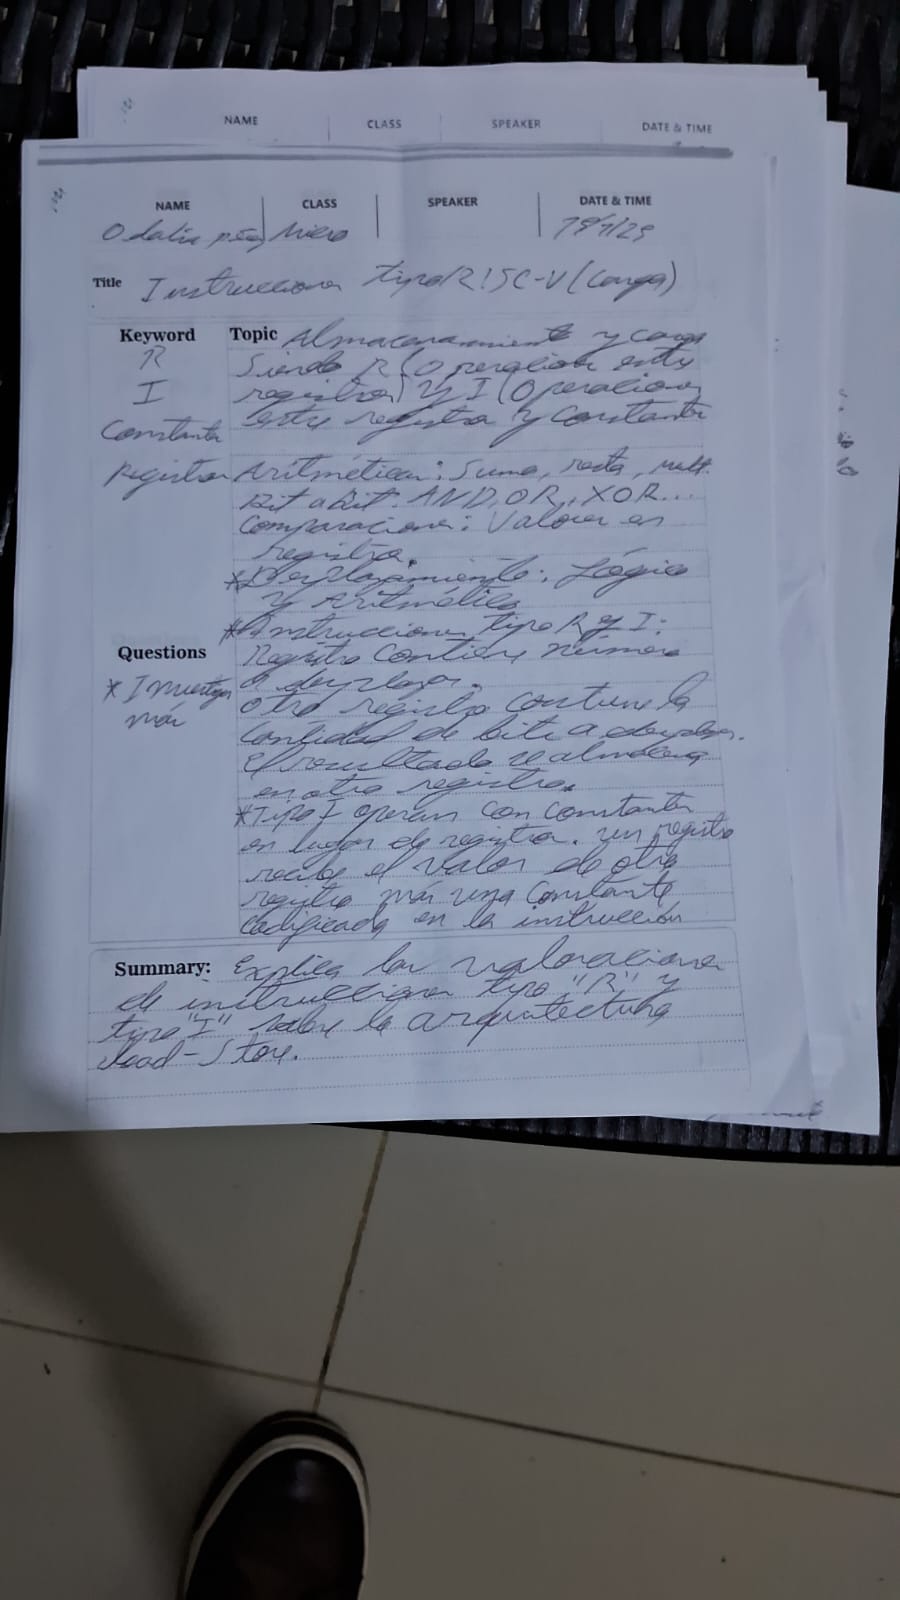 NAME CLASS SPEAKER DATE & TIME
NAME CLASS SPEAKER DATE & TIME
Odalis Micro
Title Instrucciones tipo RISC-V (Carga)
Keyword Topic Almacenamiento y carga
R Siendo R (Operaciones entre
I registros) y I (Operaciones
entre registro y constante
Constante
Registros Aritméticas: Suma, resta, mult.
Bit a Bit. AND, OR, XOR...
Comparaciones: Valores en
registro.
* Desplazamiento: Lógico
y Aritmético
* Instrucciones tipo R y I:
Questions Registro contiene número
* Investigar a desplazar.
más otro registro contiene la
cantidad de bits a desplazar.
El resultado se almacena
en otro registro.
* Tipo I operan con constantes
en lugar de registro. un registro
recibe el valor de otro
registro más una constante
codificada en la instrucción
Summary: Explica las valoraciones
de instrucciones tipo "R" y
tipo "I" sobre la arquitectura
load-Store.